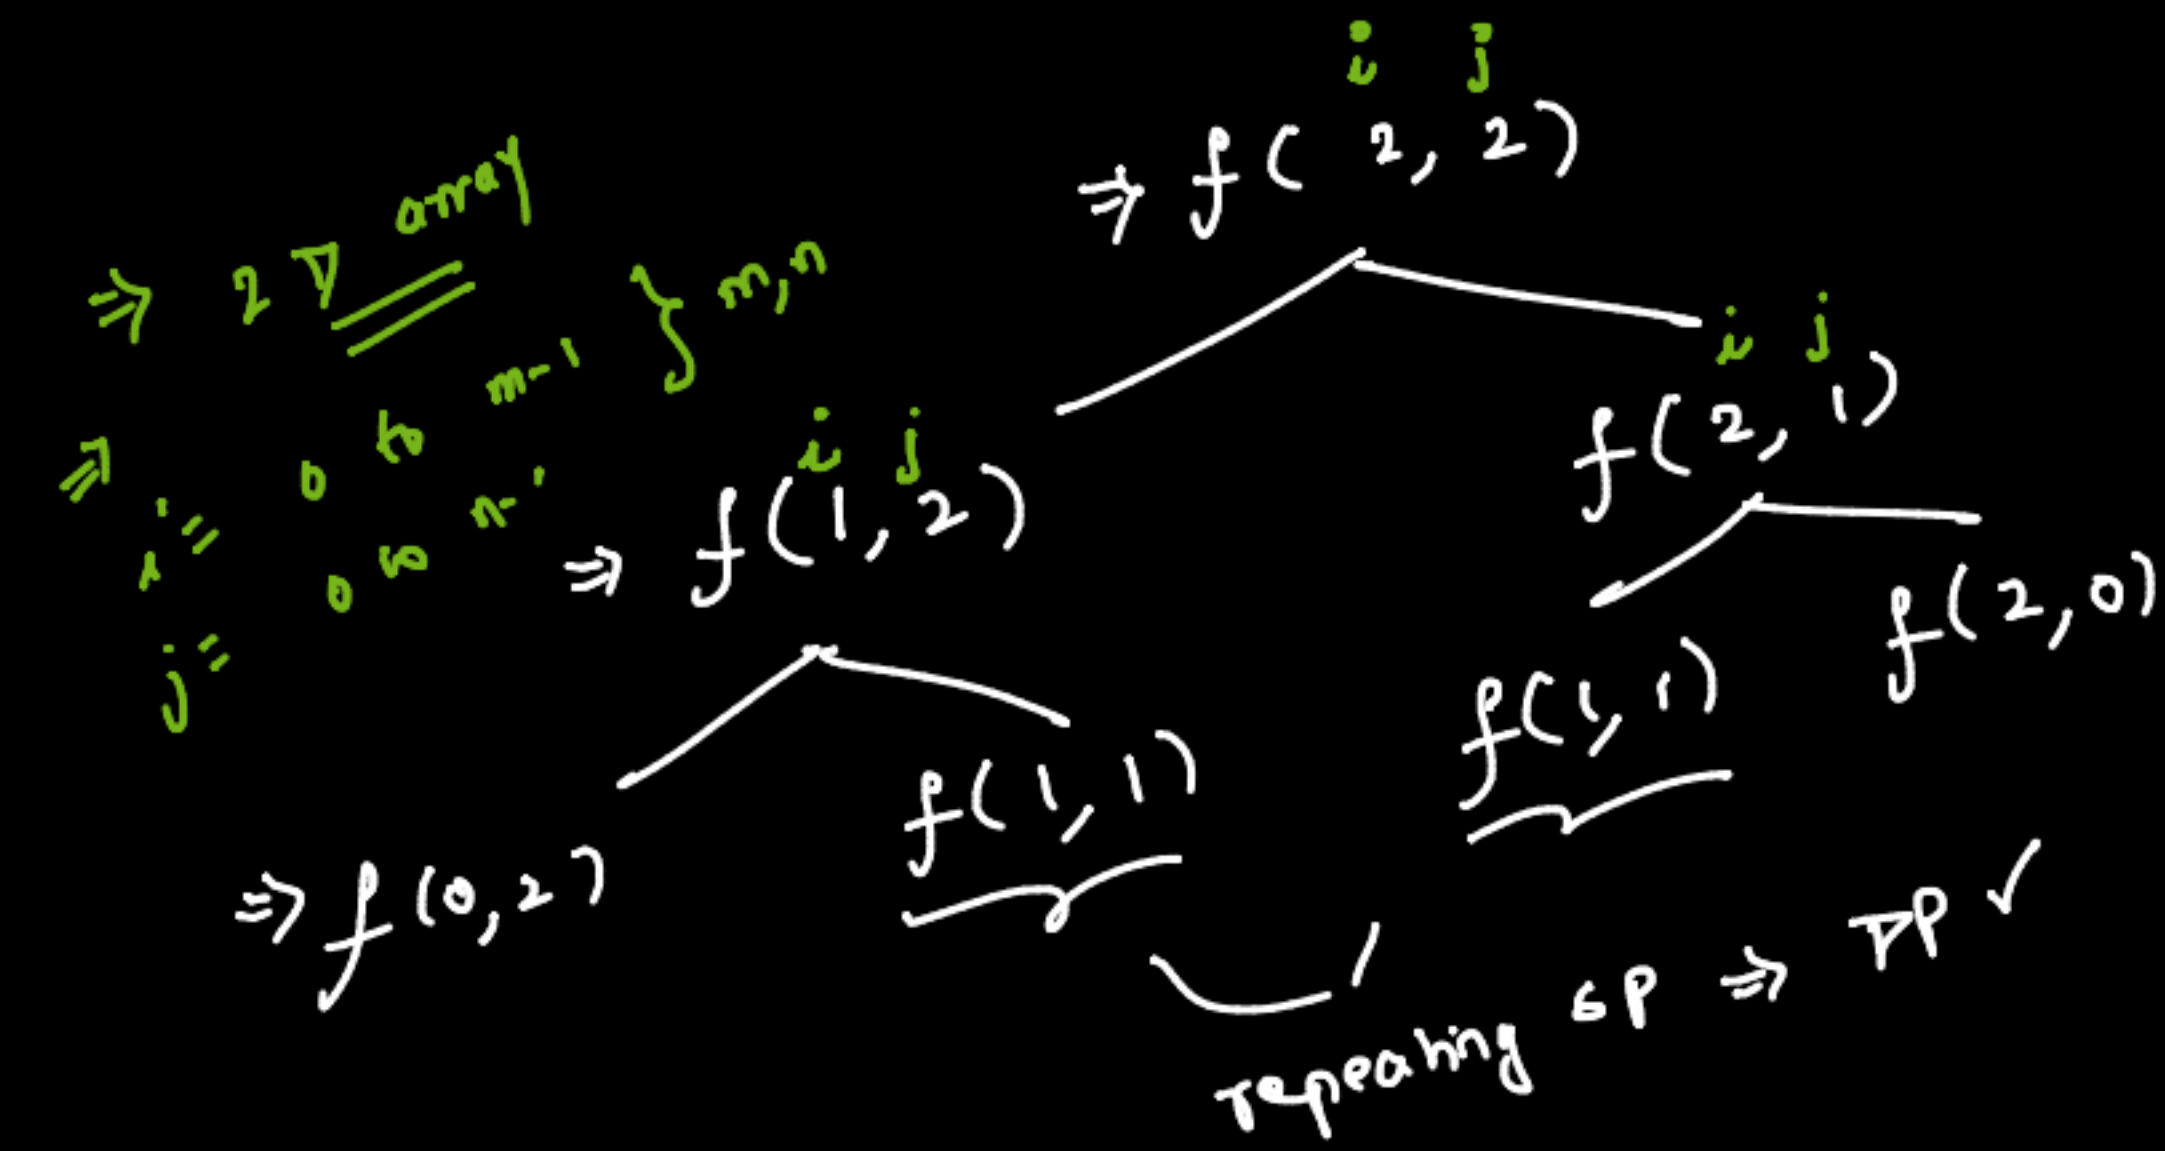 i j
⇒ f(2, 2)
⇒ 2D array
i = 0 to m-1 } m, n
j = 0 to n-1
i j
f(2, 1)
i j
⇒ f(1, 2)
f(2, 0)
f(1, 1)
f(1, 1)
⇒ f(0, 2)
repeating SP ⇒ DP ✓